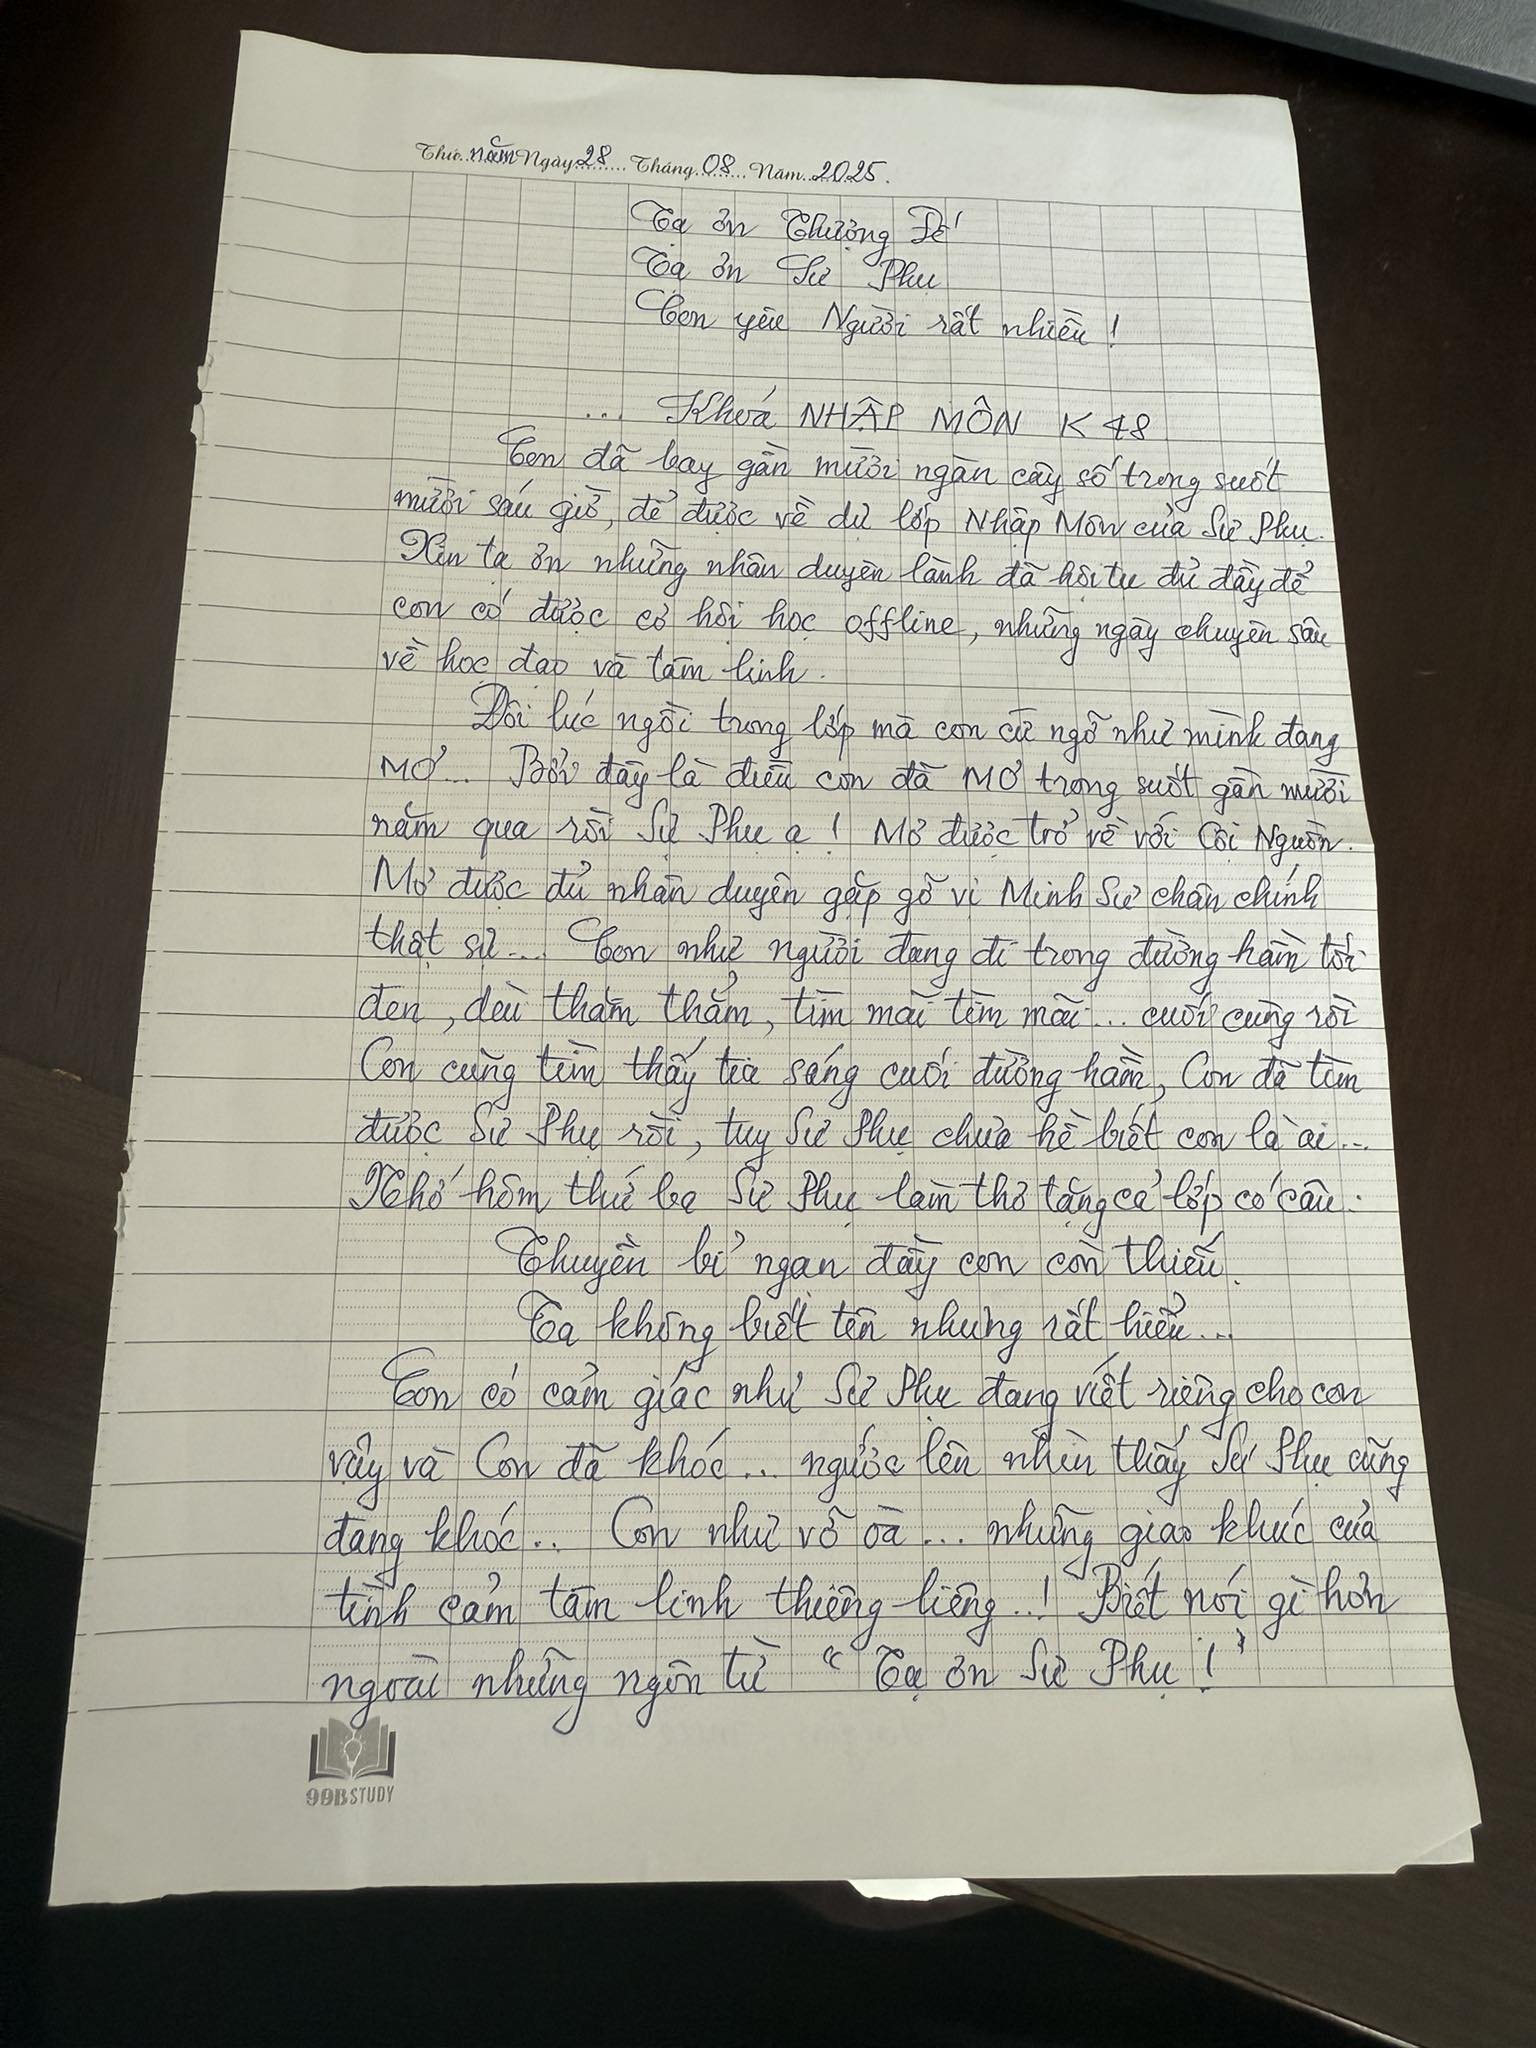 Thứ năm Ngày 28 Tháng 08 Năm 2025.
Tạ ơn Thượng Đế
Tạ ơn Sư Phụ
Con yêu Người rất nhiều!
... Khoá NHẬP MÔN K48
Con đã bay gần mười ngàn cây số trong suốt
mười sáu giờ, để được về dự lớp Nhập Môn của Sư Phụ.
Xin tạ ơn những nhân duyên lành đã hội tụ đủ đầy để
con có được cơ hội học offline, những ngày chuyên sâu
về học đạo và tâm linh.
Đôi lúc ngồi trong lớp mà con cứ ngỡ như mình đang
MƠ... Bởi đây là điều con đã MƠ trong suốt gần mười
năm qua rồi Sư Phụ ạ! Mơ được trở về với Cội Nguồn.
Mơ được đủ nhân duyên gặp gỡ vị Minh Sư chân chính
thật sự... Con như người đang đi trong đường hầm tối
đen, dài thăm thẳm, tìm mãi tìm mãi... cuối cùng rồi
Con cũng tìm thấy tia sáng cuối đường hầm, Con đã tìm
được Sư Phụ rồi, tuy Sư Phụ chưa hề biết con là ai...
Nhớ hôm thứ ba Sư Phụ làm thơ tặng cả lớp có câu:
Thuyền bỉ ngạn đây con còn thiếu.
Ta không biết tên nhưng rất hiểu...
Con có cảm giác như Sư Phụ đang viết riêng cho con
vậy và Con đã khóc... ngước lên nhìn thấy Sư Phụ cũng
đang khóc... Con như vỡ oà... những giao khúc của
tình cảm tâm linh thiêng-liêng..! Biết nói gì hơn
ngoài những ngôn từ "Tạ ơn Sư Phụ!"
99B STUDY